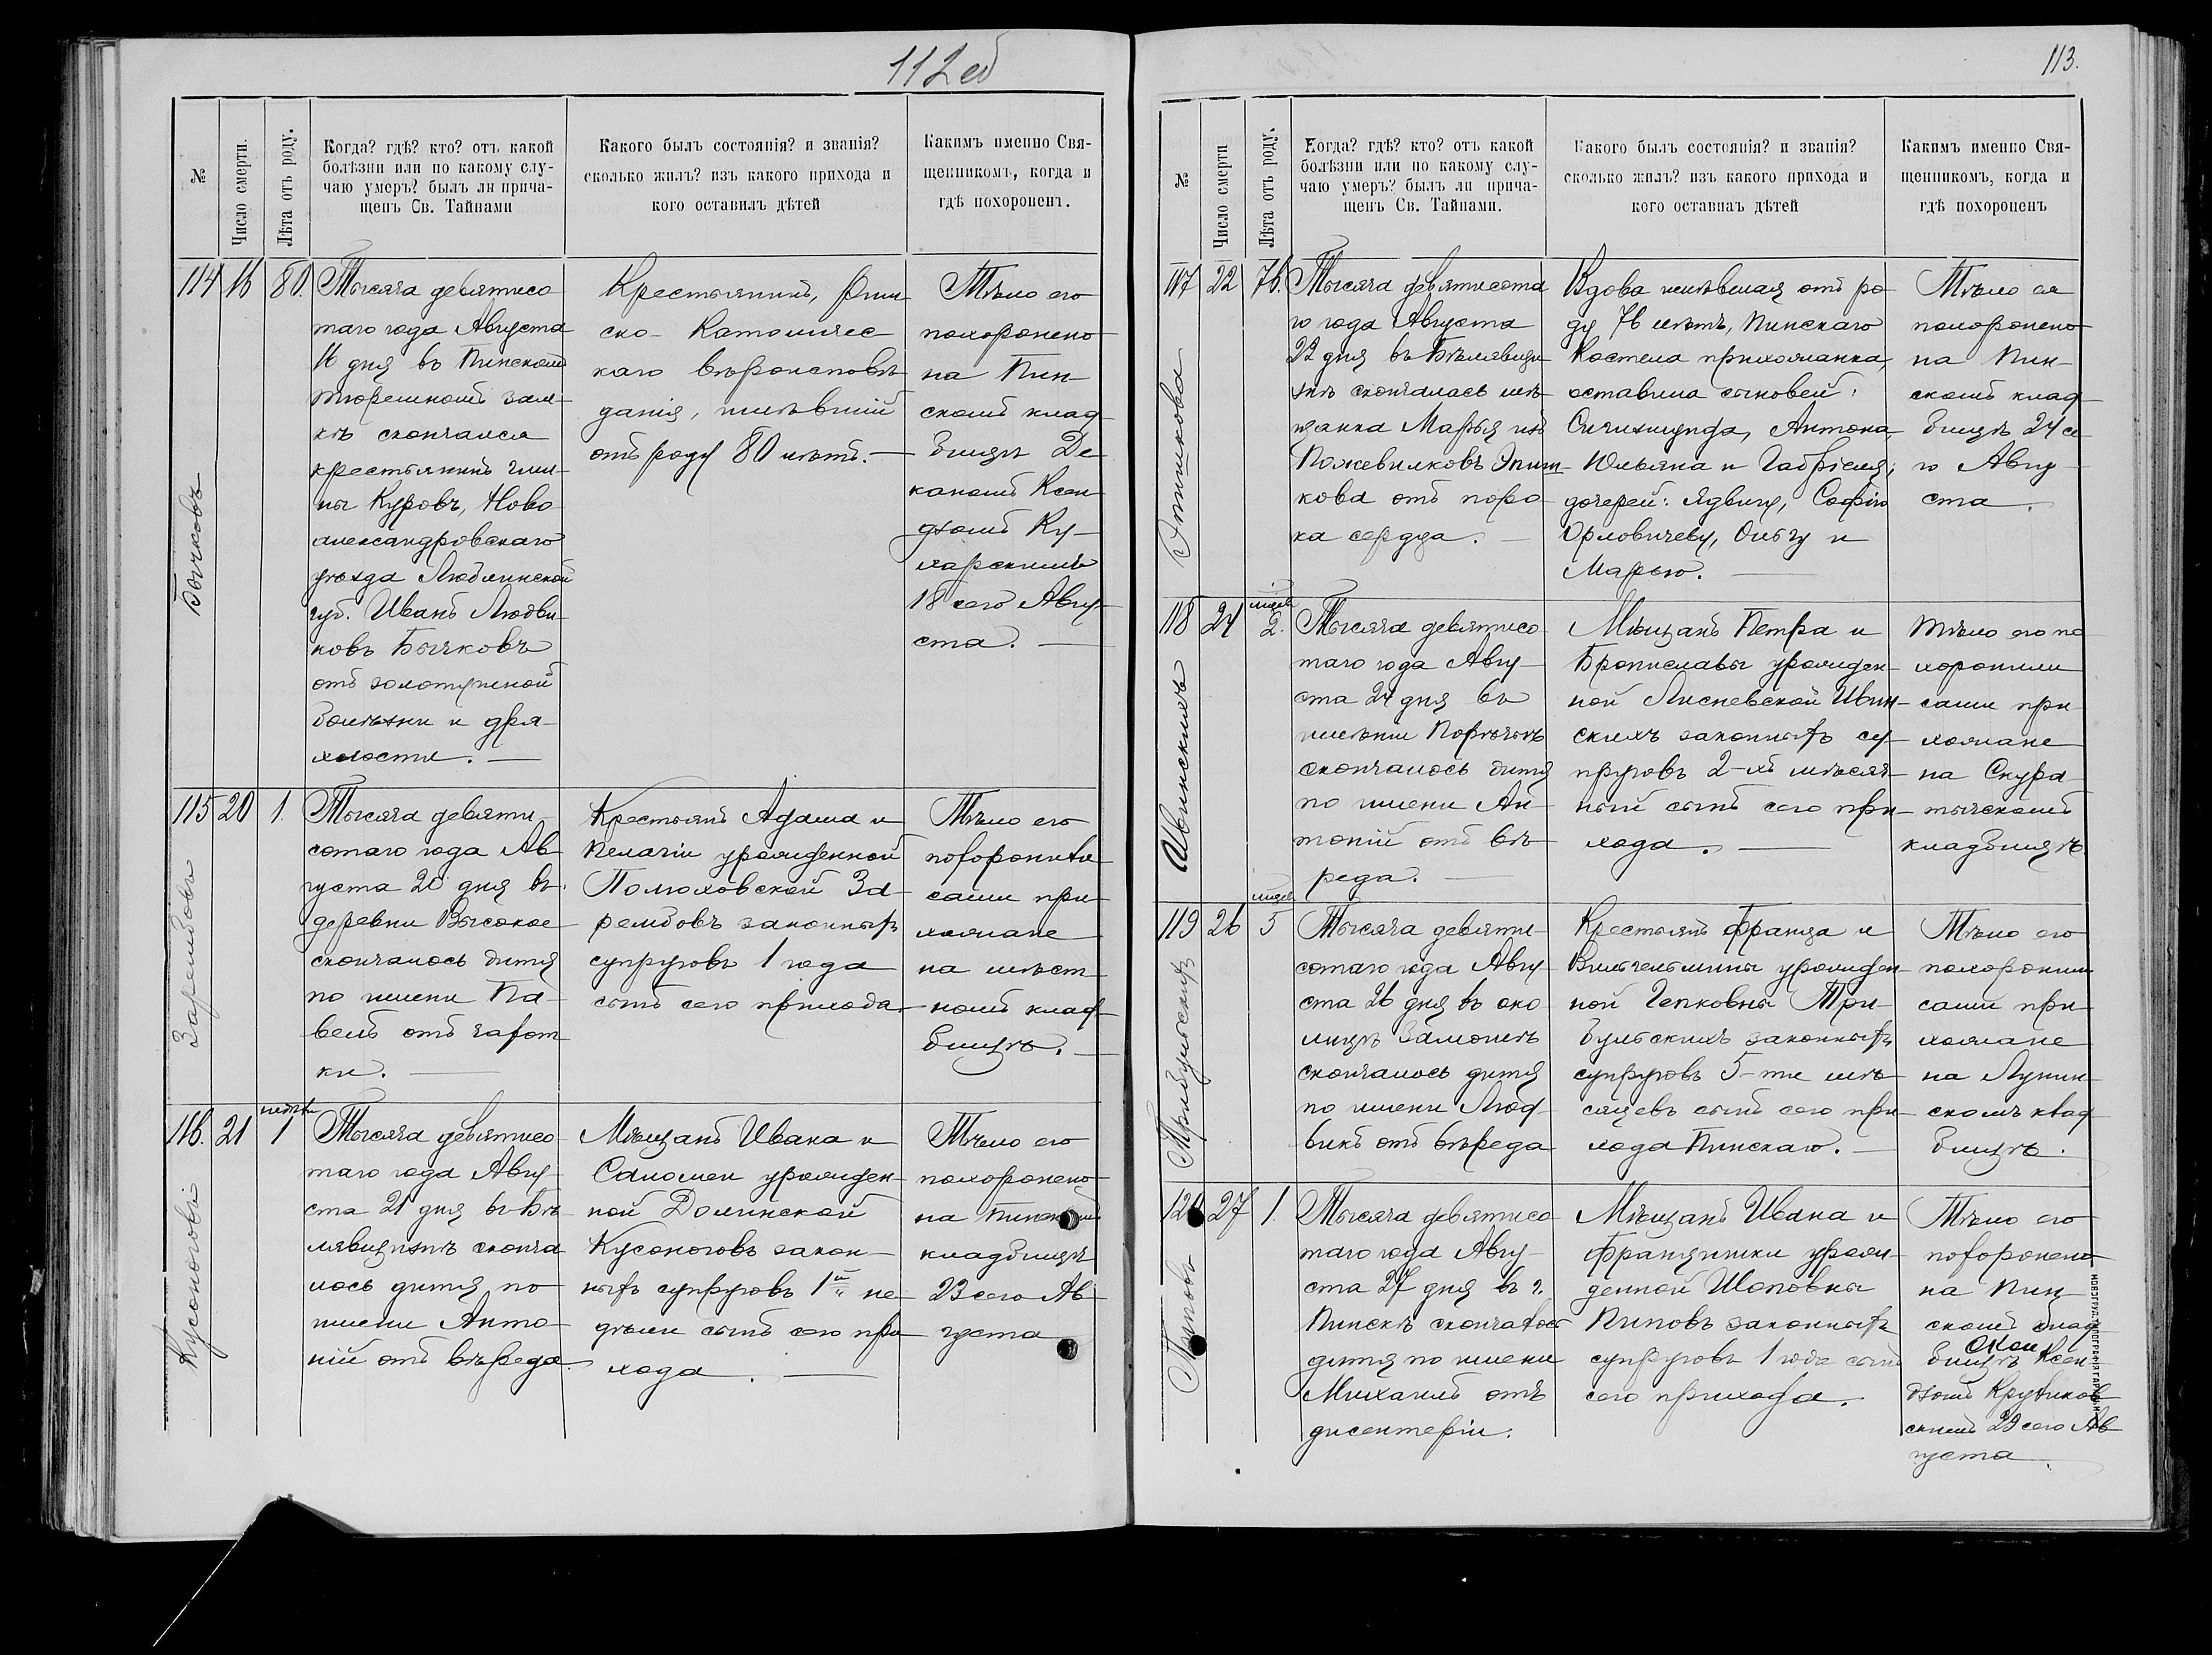 112об
№
Число смерти.
Лѣта отъ роду.
Когда? гдѣ? кто? отъ какой
болѣзни или по какому слу-
чаю умеръ? былъ ли прича-
щенъ Св. Тайнами
Какого былъ состоянія? и званія?
сколько жилъ? изъ какого прихода и
кого оставилъ дѣтей
Какимъ именно Свя-
щенникомъ, когда и
гдѣ похороненъ.
114
16
80.
Бычковъ
Тысяча девятисо
таго года Августа
16 дня въ Пинскомъ
тюремномъ зам-
кѣ скончался
крестьянинъ гми-
ны Куровъ, Ново
александровскаго
уѣзда Люблинской
губ. Иванъ Людви
ковъ Бычковъ
отъ золотушной
болѣзни и дря-
хлости. —
Крестьянинъ, Рим
ско-Католичес
каго вѣроисповѣ
данія, имѣвшій
отъ роду 80 лѣтъ. —
Тѣло его
похоронено
на Пин-
скомъ клад-
бищѣ Де
каномъ Ксен
дзомъ Ку-
харскимъ
18 сего Авгу-
ста. —
115
20
1.
Зарембовъ
Тысяча девяти-
сотаго года Ав
густа 20 дня въ
деревни Высокое
скончалось дитя
по имени Па-
велъ отъ чахот
ки. —
Крестьянъ Адама и
Пелагіи урожденной
Полюховской За-
рембовъ законныхъ
супруговъ 1 года
сынъ сего прихода.
Тѣло его
похоронили
сами при
хожане
на мѣст
номъ клад-
бищѣ. —
116.
21
недѣли
1
Кусоноговъ
Тысяча девятисо
таго года Авгу-
ста 21 дня въ Бѣ
лявщизнѣ сконча
лось дитя по
имени Анто-
ній отъ вѣреда.
Мѣщанъ Ивана и
Саломеи урожден-
ной Долинской
Кусоноговъ закон-
ныхъ супруговъ 1й не-
дѣли сынъ сего при
хода. —
Тѣло его
похоронено
на Пинскомъ
кладбищѣ
23 сего Ав-
густа
113.
№
Число смерти
Лѣта отъ роду.
Когда? гдѣ? кто? отъ какой
болѣзни или по какому слу-
чаю умеръ? былъ ли прича-
щенъ Св. Тайнами.
Какого былъ состоянія? и званія?
сколько жилъ? изъ какого прихода и
кого оставилъ дѣтей
Какимъ именно Свя-
щенникомъ, когда и
гдѣ похороненъ
117
22
76.
Эпимахова
Тысяча девятисота
го года Августа
22 дня въ Бѣлявщи
знѣ скончалась мѣ-
щанка Марья изъ
кова отъ поро
ка сердца. —
Вдова имѣвшая отъ ро
ду 76 лѣтъ, Пинскаго
Костела прихожанка,
оставила сыновей:
Сигизмунда, Антона,
Юльяна и Габріеля;
дочерей: Ядвигу, Софію
Орловичеву, Ольгу и
Марью. —
Тѣло ея
похоронено
на Пин-
скомъ клад
бищѣ 24 се
го Авгу-
ста.
118
24
мѣсяц
2.
Ивинскихъ
Тысяча девятисо
таго года Авгу-
ста 24 дня въ
имѣніи Порѣчьѣ
скончалось дитя
по имени Ан-
тоній отъ вѣ-
реда. —
Мѣщанъ Петра и
Брониславы урожден-
ной Лисневской Ивин-
скихъ законныхъ су-
пруговъ 2-хъ мѣсяч
ный сынъ сего при-
хода. —
Тѣло его по
хоронили
сами при
хожане
на Скура
тычскомъ
кладбищѣ
119
26
мѣсяц
5
Трибульскихъ
Тысяча девяти-
сотаго года Авгу
ста 26 дня въ око
лицѣ Заможьѣ
скончалось дитя
по имени Люд-
викъ отъ вѣреда
Крестьянъ Франца и
Вильгельмины урожден-
ной Гепковны Три-
бульскихъ законныхъ
супруговъ 5-ти мѣ-
сяцевъ сынъ сего при
хода Пинскаго. —
Тѣло его
похоронили
сами при
хожане
на Лунин-
скомъ клад
бищѣ.
120
27
1.
Тысяча девятисо
таго года Авгу-
ста 27 дня въ г.
Пинскѣ скончалось
дитя по имени
Михаилъ отъ
дисентеріи.
Мѣщанъ Ивана и
Францишки урож-
денной Шоповны
Пиповъ законныхъ
супруговъ 1 года сынъ
сего прихода.
Тѣло его
похоронено
на Пин-
скомъ клад
бищѣ Ксен-
дзомъ Крутиков
скимъ 29 сего Ав
густа.